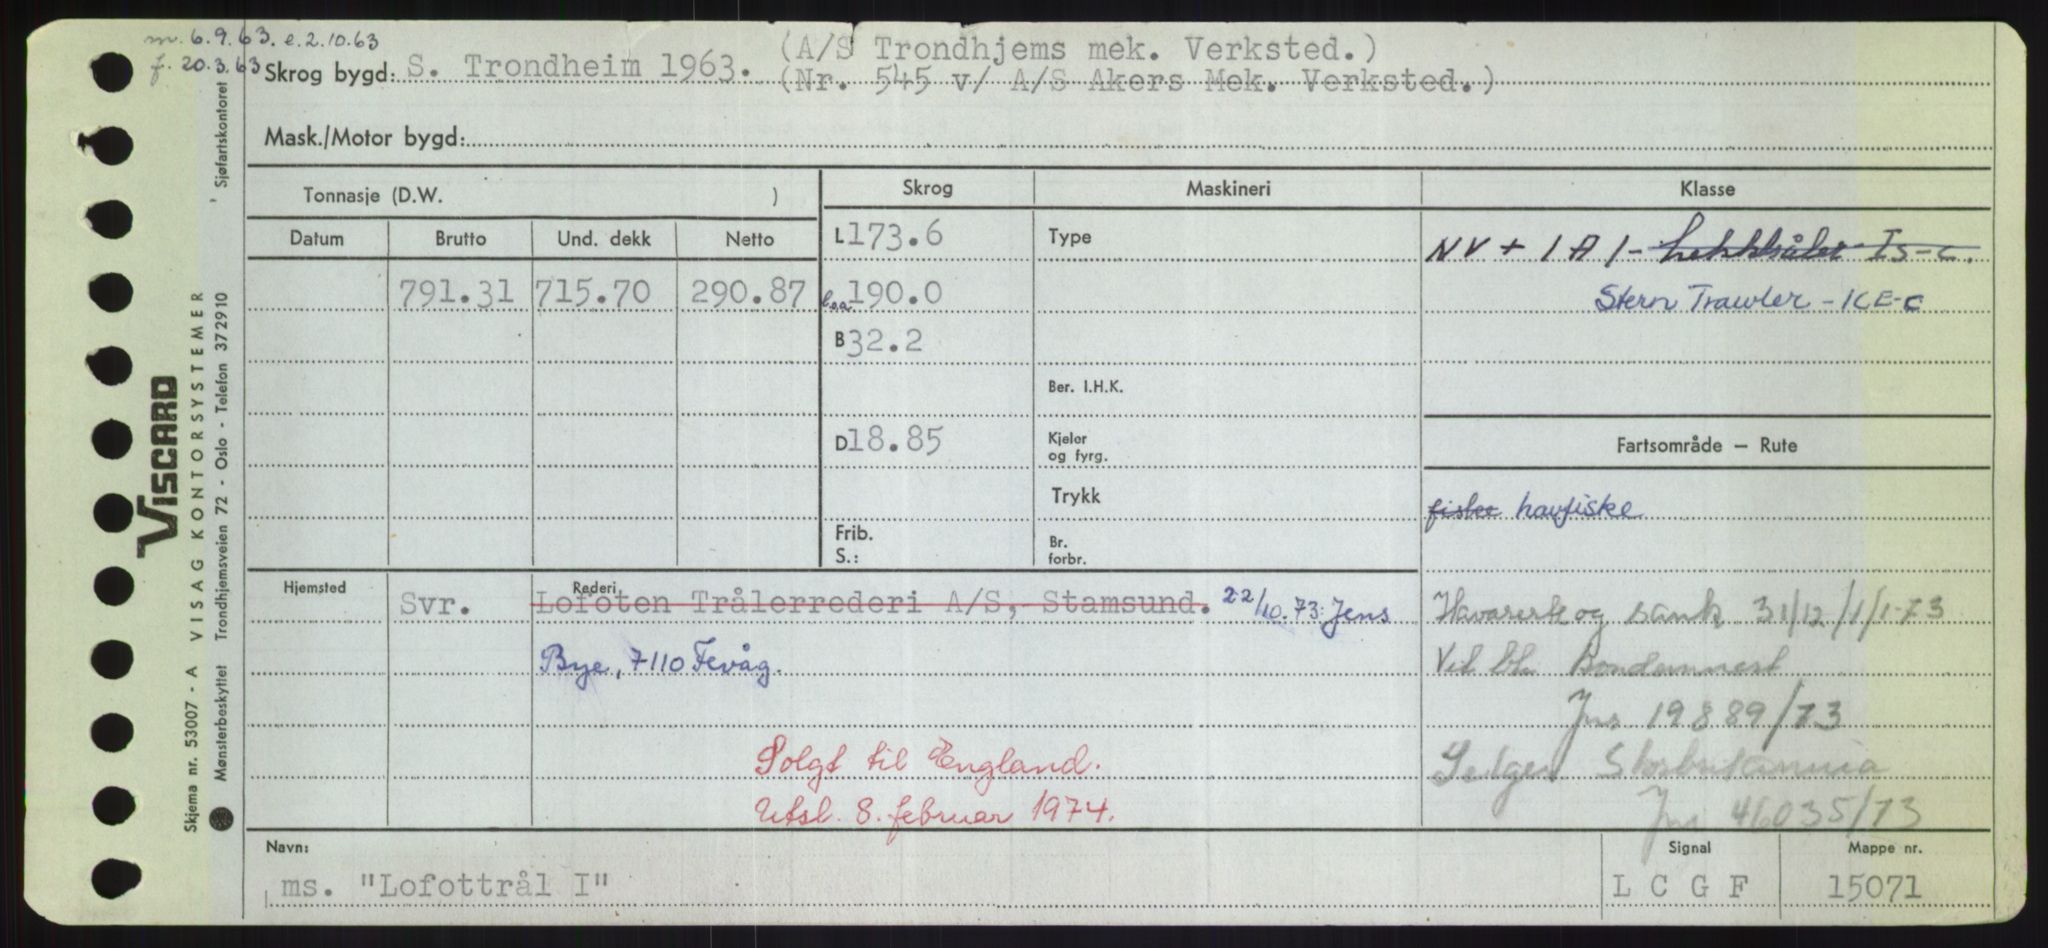 m. 6.9.63. e. 2.10.63
f. 20.3.63
Skrog bygd: S. Trondheim 1963. (A/S Trondhjems mek. Verksted.)
(Nr. 545 v/ A/S Akers Mek. Verksted.)
Mask./Motor bygd:
Tonnasje (D.W. )
Skrog
Maskineri
Klasse
Datum
Brutto
Und. dekk
Netto
L 173.6
Type
NV + 1 A 1 - hekktråler IS-C.
791.31 715.70 290.87
loa 190.0
Stern Trawler - ICE-C
B 32.2
Ber. I.H.K.
D 18.85
Kjeler
og fyrg.
Fartsområde — Rute
Trykk
fiske havfiske
Frib.
S.:
Br.
forbr.
Hjemsted
Svr.
Rederi
Lofoten Trålerrederi A/S, Stamsund. 22/10.73: Jens
Bye, 7110 Fevåg.
Havarerte og sank 31/12/1/1-73
Jns 19889/73
Solgt til England.
Selges Storbritannia
Utsl. 8. februar 1974.
Jns 46035/73
Navn:
ms. "Lofottrål I"
Signal
L C G F
Mappe nr.
15071
VISCARD
Skjema nr. 53007 - A VISAG KONTORSYSTEMER
Mønsterbeskyttet Trondhjemsveien 72 - Oslo - Telefon 372910 ' Sjøfartskontoret